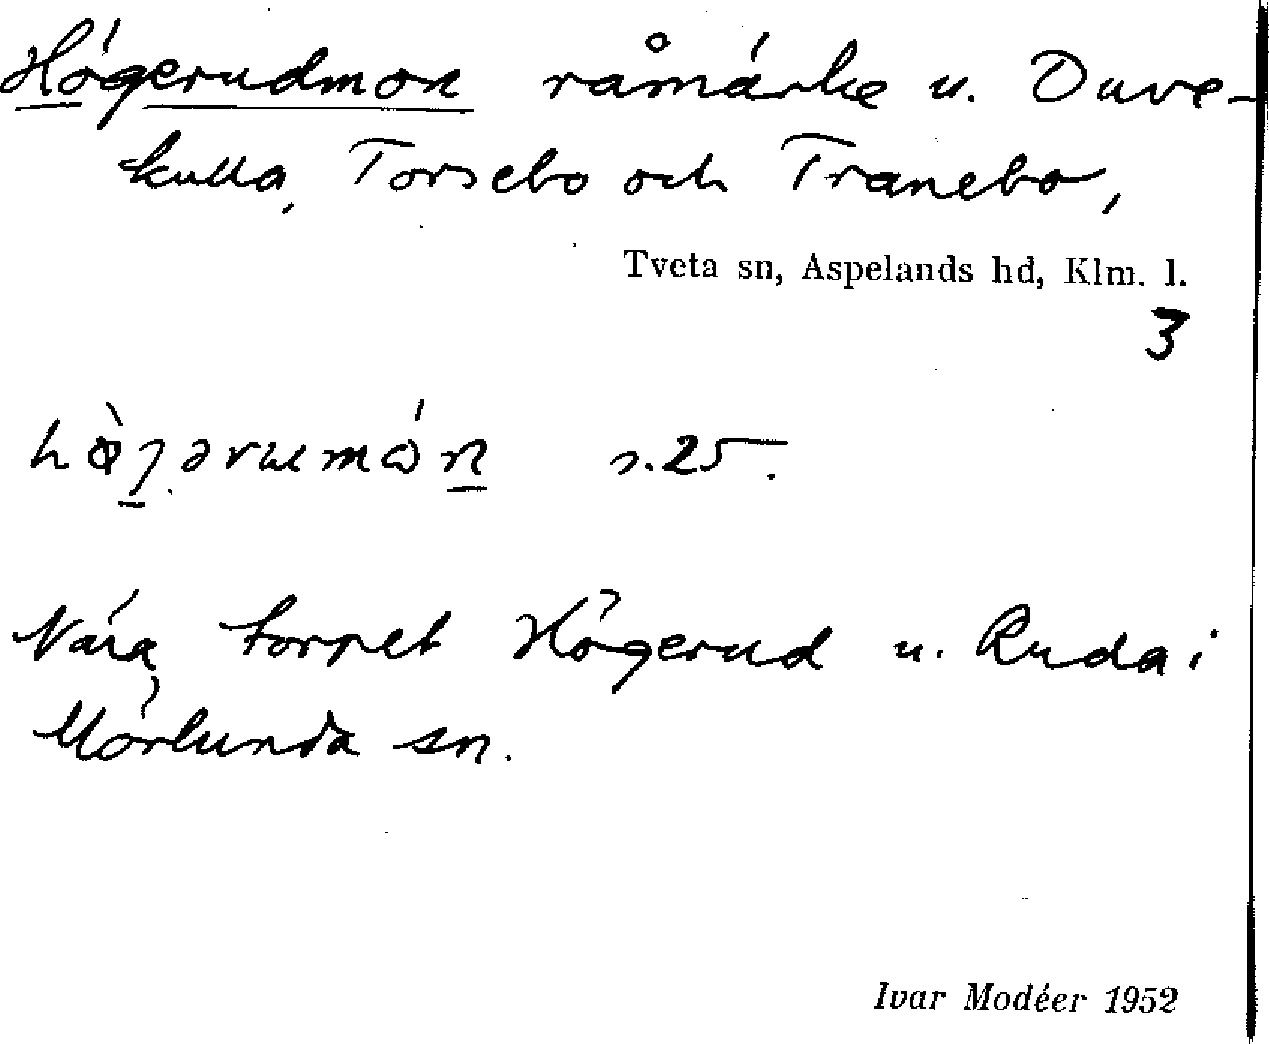 Högerudmon råmärke u. Duve-
kulla, Torsebo och Tranebo,
Tveta sn, Aspelands hd, Klm. l.
3
s. 25.
Nära torpet Högerud u. Ruda i
Mörlunda sn.
Ivar Modéer 1952